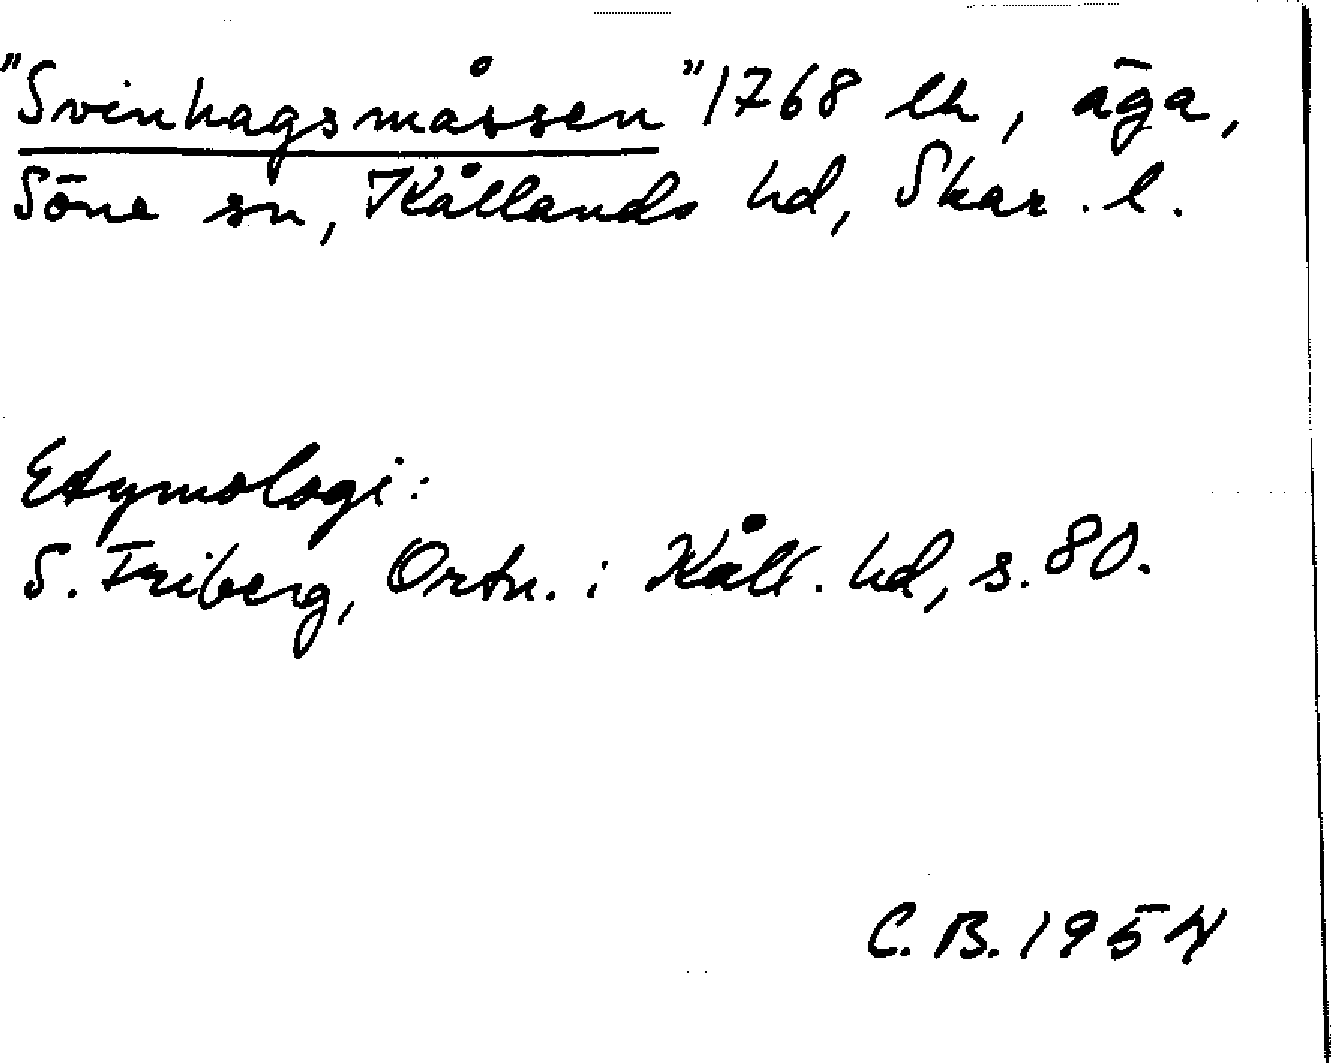 "Svinhagsmåssen" 1768 lh, äga,
Söne sn, Kållands hd, Skar. l.
Etymologi:
S. Friberg, Ortn. i Kåll. hd, s. 80.
C. B. 1954